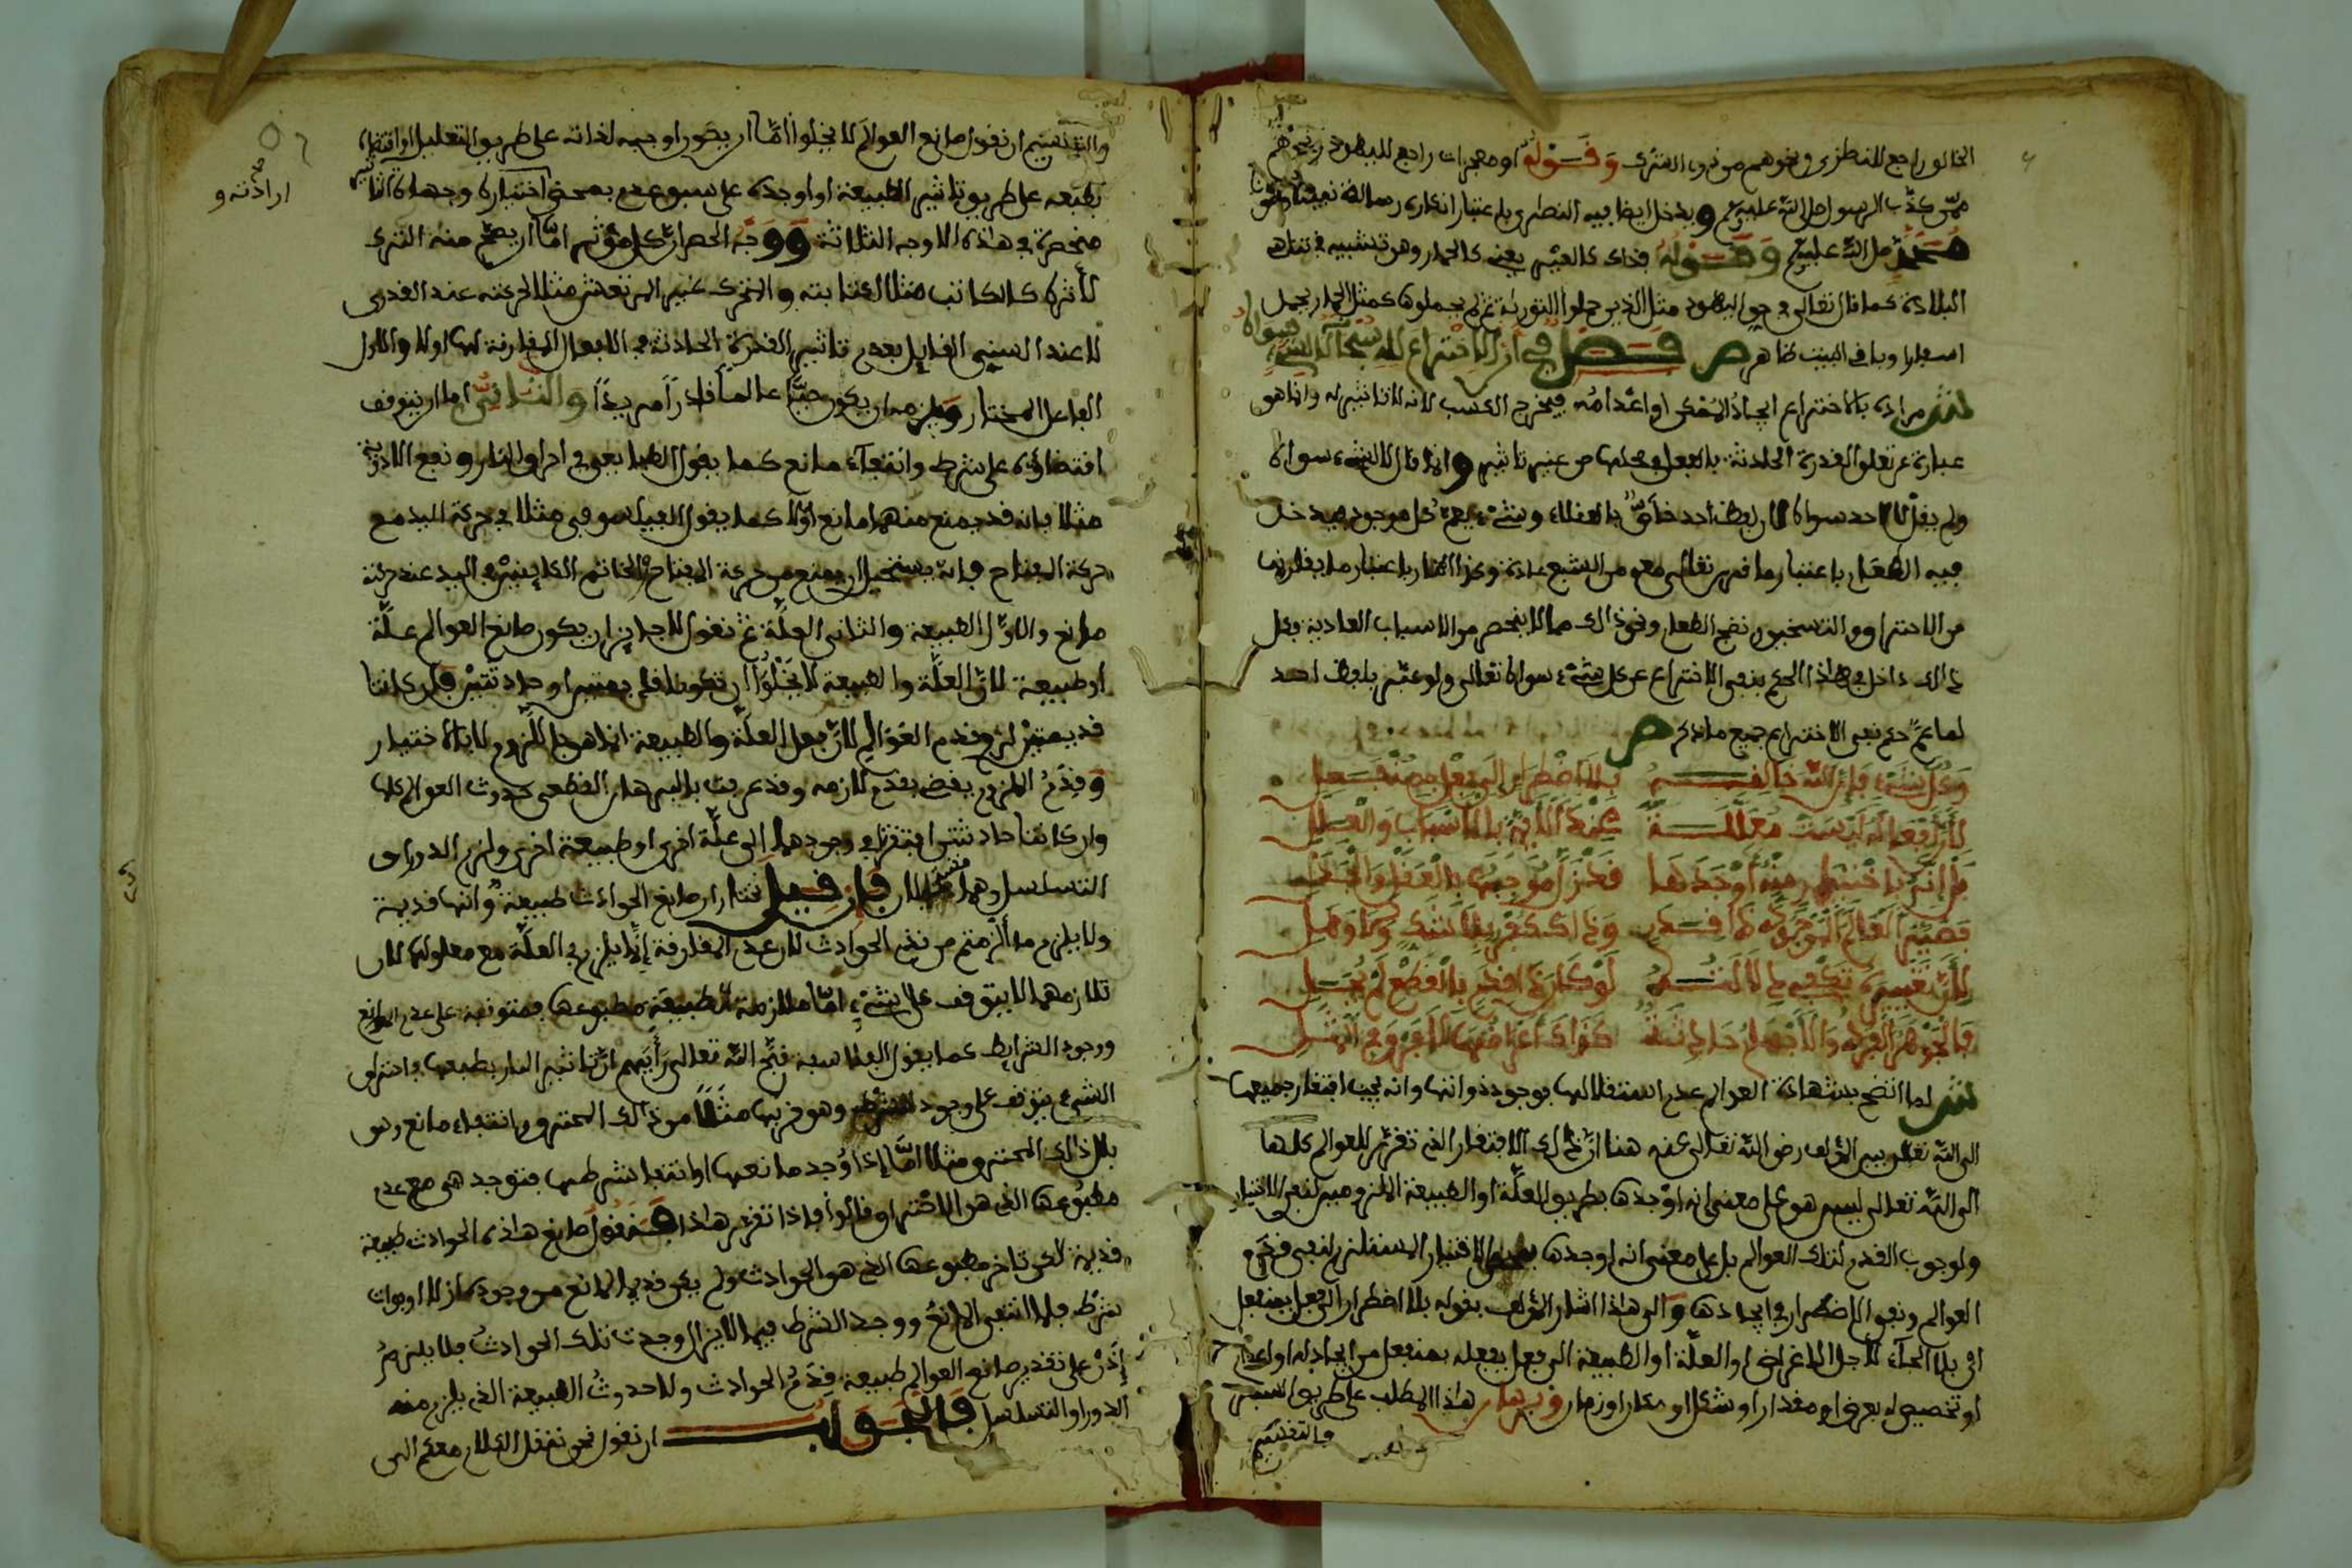 الخالق راجع للنطزى ونحوهم من ذوى الشرك وقوله او معجزات راجع لليهود ونحوهم
ممن كذب الرسول صلى الله عليه وسلم ويدخل ايضا فيه النصارى باعتبار انكاره رسالة نبينا ومولانا
محمد صلى الله عليه وسلم وقوله فذاك كالعير يعنى كالحمار وهو تشبيه في تناهى
البلادة كما قال تعالى في حق اليهود مثل الذين حملوا التورية ثم لم يحملوها كمثل الحمار يحمل
اسفارا وباقى البيت ظاهر ص فصل في ان الاختراع لله سبحانه لا لشىء سواه
ش مراده بالاختراع ايجاد الممكن او اعدامه فيخرج الكسب لانه لا تاثير له وانما هو
عبارة عن تعلق القدرة الحادثة بالفعل في محلها من غير تاثير وانما قال لا لشىء سواه
ولم يقل لا لاحد سواه لان لفظ احد خاص بالعقلاء وشىء يعم كل موجود فيدخل
فيه الطعام باعتبار ما قرن تعالى معه من الشبع عادة وكذا النار باعتبار ما يقارنها
من الاحتراق والتسخين ونضج الطعام ونحو ذلك مما لا ينحصر من الاسباب العادية فكل
ذلك داخل في هذا الحكم بنفى الاختراع عن كل شىء سواه تعالى ولو عبر بلفظ احد
لما عم حكم نفى الاختراع جميع ما ذكر ص
وكل شىء فان الله خالقه بلا اضطرار الى فعل بمنفعل
لان افعاله ليست معللة عند الايمة بالاسباب والعلل
بل انه باختيار منه اوجدها
فصير العالم الموجود ذا قدم وذاك كفر بلا شك ولا وهل
لان تغييره تكفى دلالته لو كان ذا قدم بالقطع لم يحل
فالجوهر الفرد والاجسام حادثة كذاك اعراضها
ش لما اتضح بشهادة العوالم عدم استقلالها بوجود ذواتها وانه يجب افتقار جميعها
الى الله تعالى بين المؤلف رضى الله تعالى عنه هنا ان ذلك الافتقار الذى تقرر للعوالم كلها
الى الله تعالى ليس هو على معنى انه اوجدها بطريق العلة او الطبيعة الملزومين لنفى الاختيار
ولوجوب القدم لتلك العوالم بل على معنى انه اوجدها بمحض الاختيار المستلزم لنفى قدم
العوالم ونفى الاضطرار في ايجادها والى هذا اشار المؤلف بقوله بلا اضطرار الى فعل بمنفعل
اى بلا الجاء لاجل الاغراض او العلة او الطبيعة الى فعل يفعله بمنفعل من ايجاد له او اعدام
او تخصيص له بعرض او مقدار او شكل او مكان او زمان وبرهان هذا المطلب على طريق السبر
والتقسيم
والتقسيم ان نقول صانع العوالم لا يخلوا اما ان يكون اوجبه لذاته على طريق التعليل او اقتضاه
بطبعه على طريق تاثير الطبيعة او اوجده على سبق عدم بمحض اختياره وجهات التاثير
ارادته و
منحصرة في هذه الاوجه الثلاثة ووجه الحصر ان كل مؤثر اما ان يصح منه الترك
لاثره كالكاتب مثلا لكتابته والمتحرك غير المرتعش مثلا لحركته عند القدرى
لا عند السنى القايل بعدم تاثير القدرة الحادثة في الافعال المقارنة لها اولا والاول
الفاعل المختار ويلزمه ان يكون حيا عالما قادرا مريدا والثانى اما ان يتوقف
اقتضاؤه على شرط وانتفاء مانع كما يقول الطبايعى في احراق النار ونفع الادوية
مثلا فانه قد يمنع منهما مانع اولا كما يقول الفيلسوفى مثلا في حركة اليد مع
حركة المفتاح فانه يستحيل ان يمنع من حركة المفتاح والخاتم الكاينين في اليد عند حركته
مانع والاول الطبيعة والثانى العلة ثم نقول لا جايز ان يكون صانع العوالم علة
او طبيعة لان العلة والطبيعة لا يخلوا ان تكونا قديمتين او حادثتين فان كانتا
قديمتين لزم قدم العوالم لان فعل العلة والطبيعة انما هو باللزوم لا بالاختيار
وقدم الملزوم يقضى بقدم لازمه وقد عرفت بالبرهان القطعى حدوث العوالم كلها
وان كانتا حادثتين افتقرتا في وجودهما الى علة اخرى او طبيعة اخرى ولزم الدور او
التسلسل وهما محالان فان قيل نختار ان صانع الحوادث طبيعة وانها قديمة
ولا يلزم ما الزمتم من قدم الحوادث لان عدم المفارقة انما يلزم في العلة مع معلولها لان
تلازمهما لا يتوقف على شىء اما ملازمة الطبيعة مطبوعها فمتوقفة على عدم المانع
ووجود الشرايط كما يقول الفلاسفة قبح الله تعالى رايهم ان تاثير النار بطبعها في احتراق
الشىء يتوقف على وجود الشرط وهو قربها مثلا من ذلك المحترق وانتفاء مانع وهو
بلل ذلك المحترق مثلا اما اذا وجد مانعها او انتفى شرطها فتوجد هى مع عدم
مطبوعها الذى هو الاحتراق قالوا فاذا تقرر هذا فنقول صانع هذه الحوادث طبيعة
قديمة لكن تاخر مطبوعها الذى هو الحوادث ولم يكن قديما لمانع من وجودها ازلا او فوات
شرط فلما انتفى المانع ووجد الشرط فيما لا يزال وجدت تلك الحوادث فلا يلزم
اذن على تقدير صانع العوالم طبيعة قدم الحوادث ولا حدوث الطبيعة الذى يلزم منه
الدور او التسلسل فالجواب ان نقول نحن ننقل الكلام معكم الى